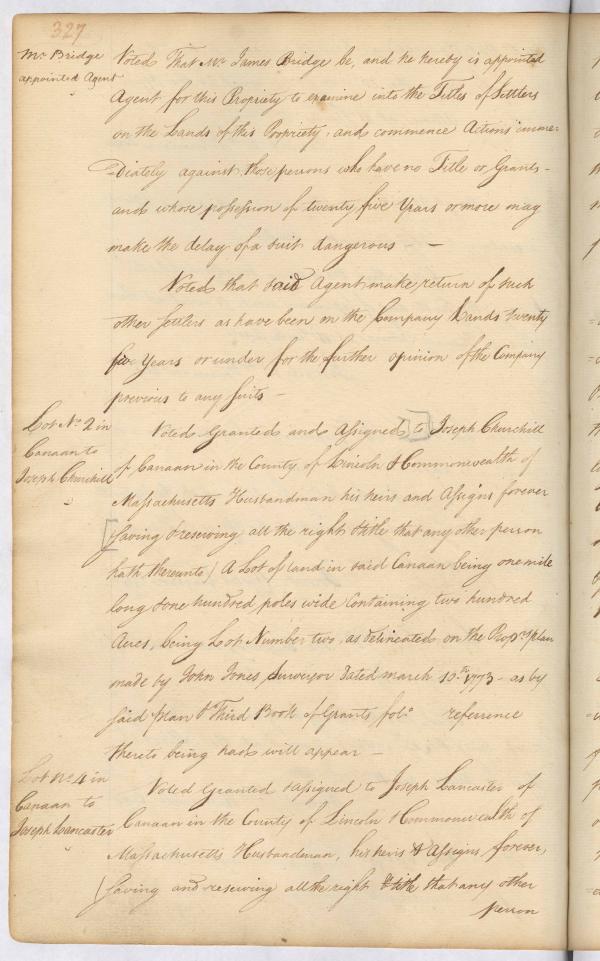 327
Mr. Bridge
appointed Agent
Voted That Mr. James Bridge be, and he hereby is appointed
Agent for this Propriety to examine into the Titles of Settlers
on the Lands of this Propriety, and commence Actions imme-
-diately against those persons who have no Title or Grants -
and whose possession of twenty five Years or more may
make the delay of a suit dangerous -
Voted that said Agent make return of such
other settlers as have been on the Company Lands twenty
five Years or under for the further opinion of the Company
previous to any suits -
Lot No. 2 in
Canaan to
Joseph Churchill
Voted Granted and Assigned [to] Joseph Churchill
of Canaan in the County of Lincoln & Commonwealth of
Massachusetts Husbandman his heirs and Assigns forever
[saving & reserving all the right & title that any other person
hath thereunto) A Lot of land in said Canaan being one mile
long & one hundred poles wide containing two hundred
Acres, being Lot Number two, as delineated on the Prop.rs plan
made by John Jones Surveyor dated march 10.th 1773 - as by
said plan & Third Book of Grants fol.o reference
thereto being had will appear -
Lot No. 4 in
Canaan to
Joseph Lancaster
Voted Granted & assigned to Joseph Lancaster of
Canaan in the County of Lincoln & Commonwealth of
Massachusetts Husbandman, his heirs & Assigns forever,
(saving and reserving all the right & title that any other
person